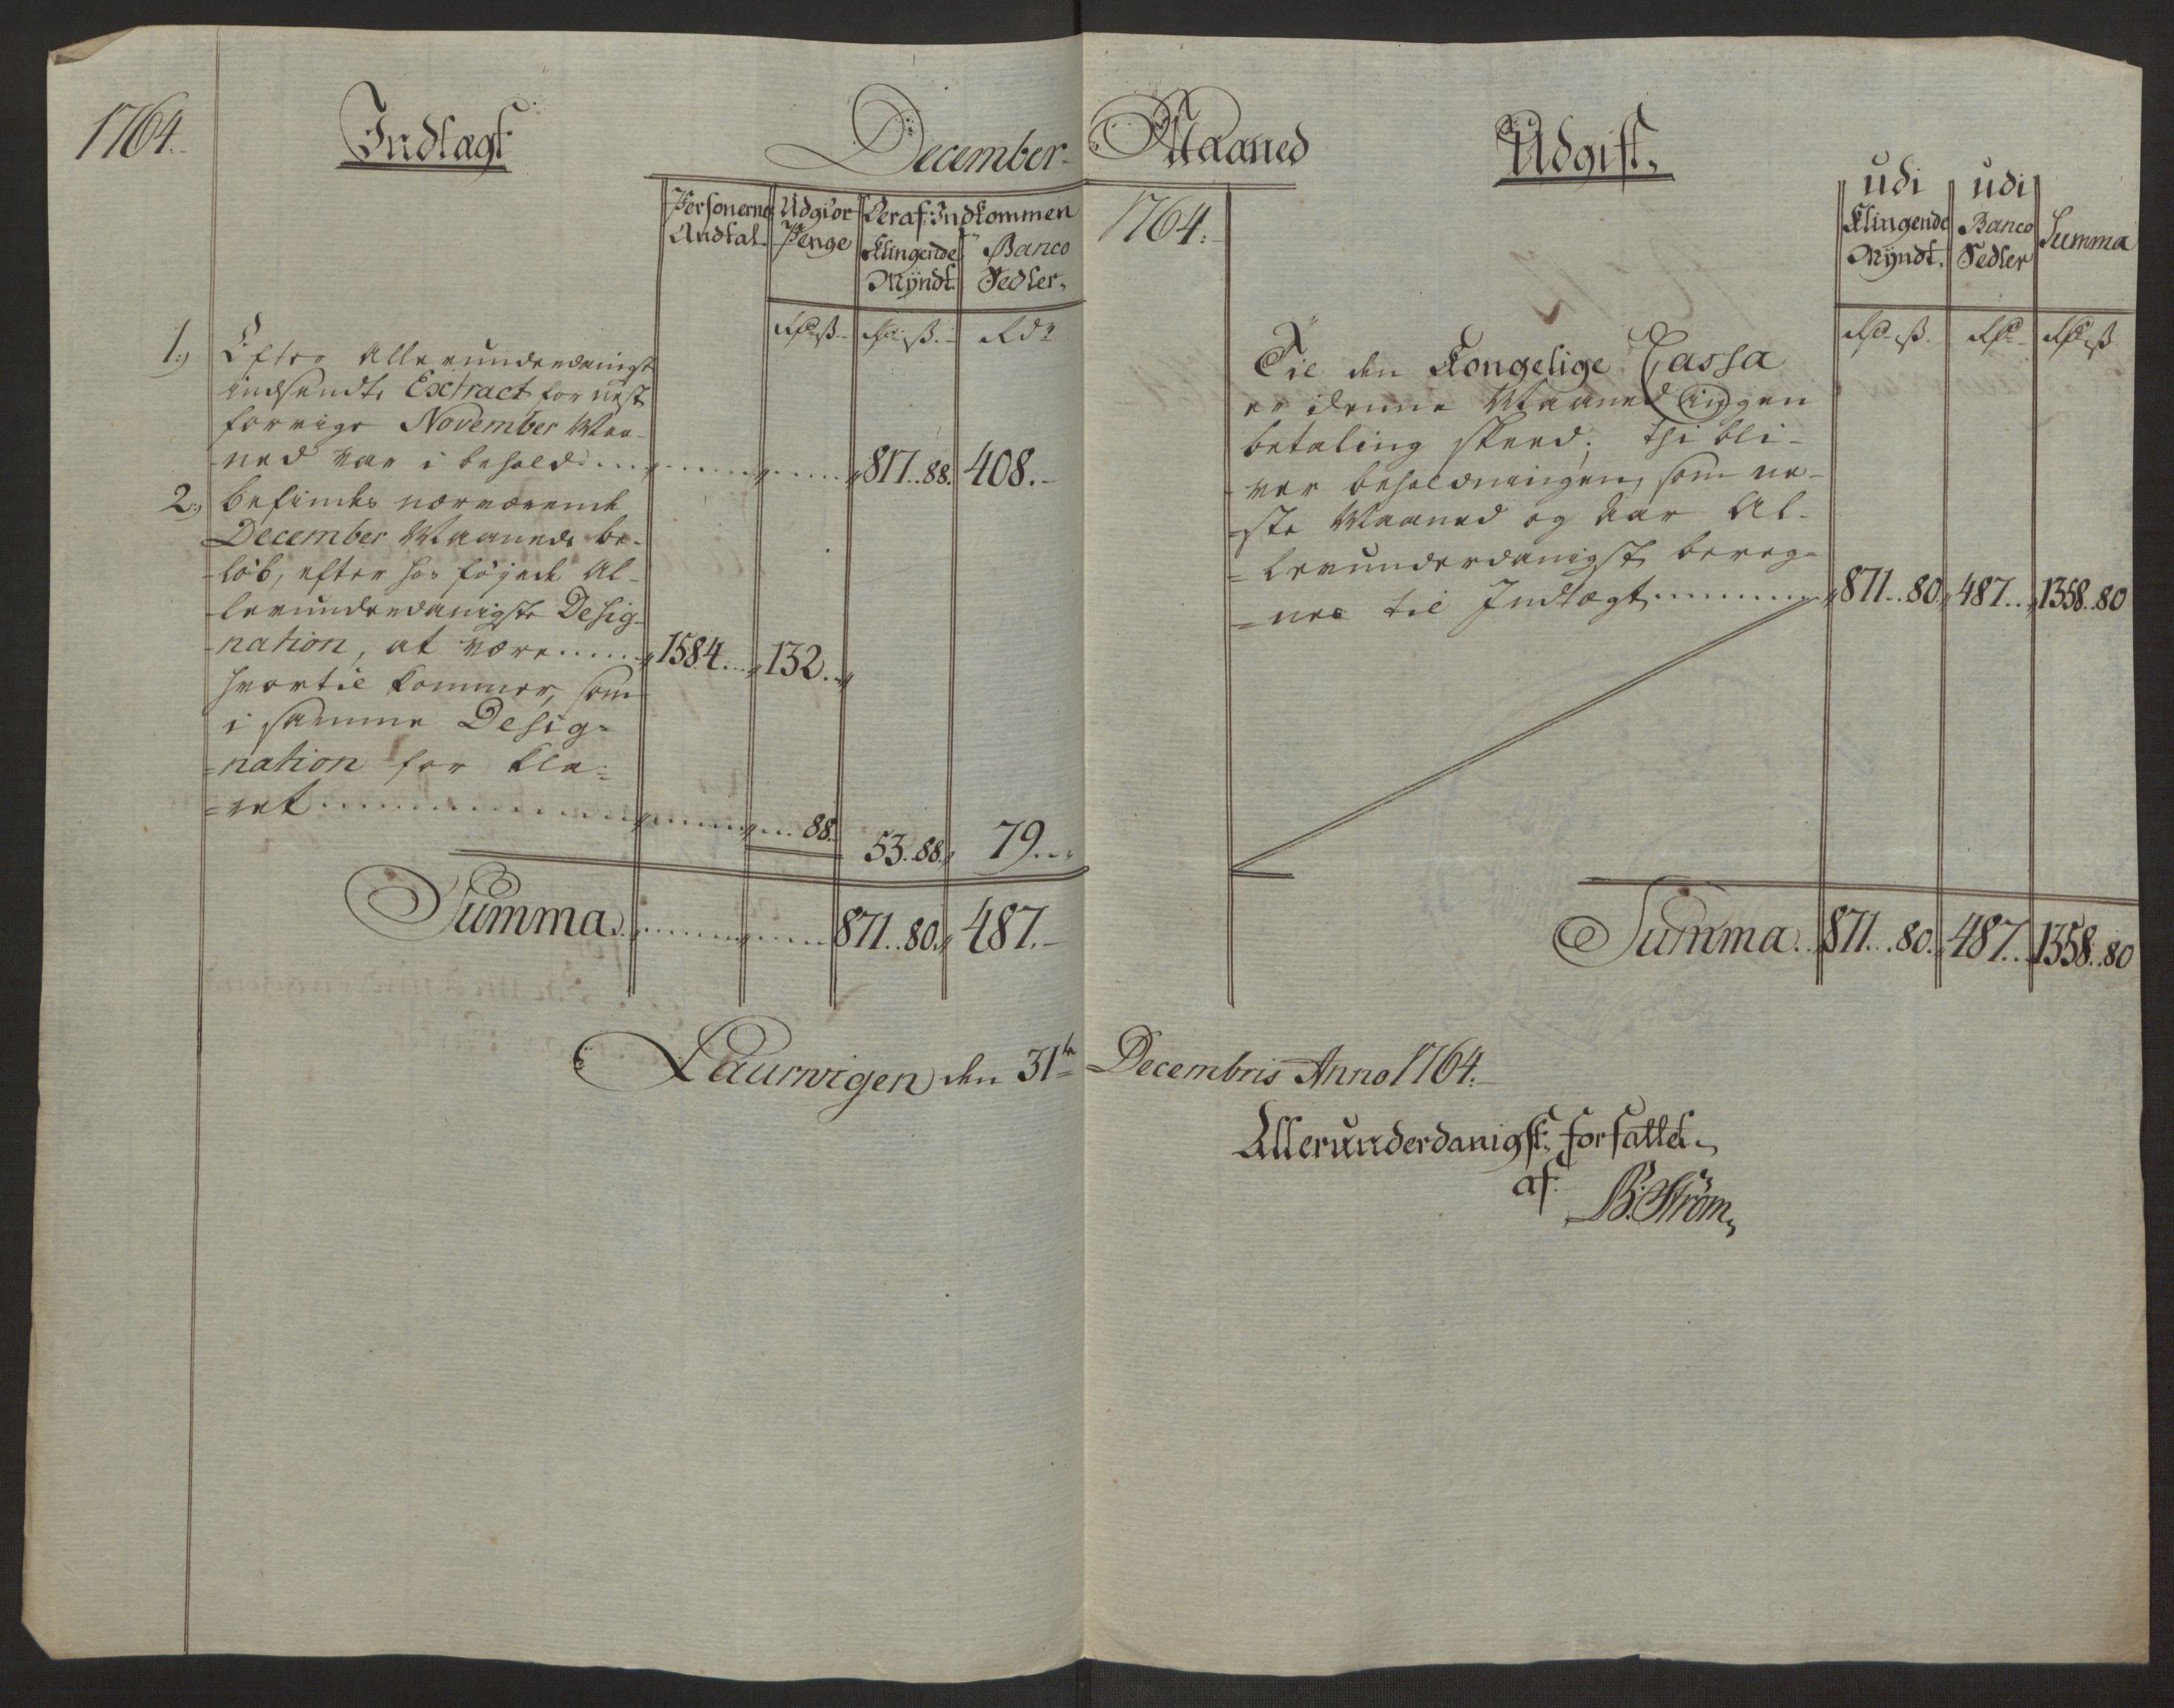 1764.
Indtægt
December
Personernes Andtal.
Udgiør Penge
Deraf Indkommen
Klingende Myndt.
Banco Sedler.
Rd ß.
Rd ß.
Rdr
1.) Efter allerunderdanigst
indsendte Extract for nest
forrige November Maa-
-ned var i behold . . . 817..88. 408.-
2.) befindes nærværende
December Maaneds be-
-løb, efter hos føyede Al-
-lerunderdanigste Desig-
-nation, at være . . . . . 1584... 132..
hvortil kommer, som
i samme Desig=
=nation for kla=
=ret . . . . . . . . . . . . . . 88. 53..88. 79...
Summa . . . . . . 871..80. 487.-
Laurwigen den 31te
Maaned
1764.
Udgift.
udi Klingende Myndt.
udi Banco Sedler
Summa
Rd ß.
Rd
Rd ß
Til den Kongelige Cassa
er denne Maaned ingen
betaling skeed; thi bli-
-ver beholdningen, som ne-
-ste Maaned og Aar Al-
=lerunderdanigst bereg=
=nes til Indtægt . . . . . . . 871..80. 487... 1358..80
Summa.. 871...80. 487... 1358..80
Decembris Anno 1764.
Allerunderdanigst forfattet
af
B. Strøm